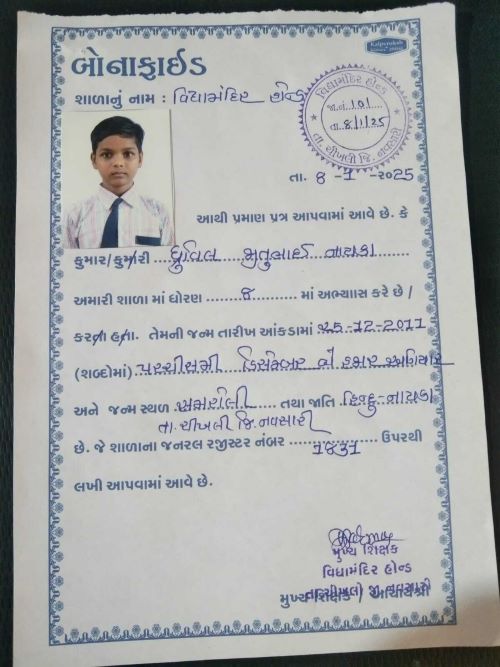 Kalpvruksh
બોનાફાઈડ
શાળાનું નામ : વિદ્યામંદિર હોન્ડ
વિદ્યામંદિર હોન્ડ
જા.નં. 101
તા. 8/1/25
તા. ચીખલી જિ. નવસારી
તા. 8-1-2025
આથી પ્રમાણ પત્ર આપવામાં આવે છે. કે
કુમાર/કુમારી ધ્રુતિલ જીતુભાઈ નાયકા
અમારી શાળા માં ધોરણ 8 માં અભ્યાસ કરે છે /
કરતા હતા. તેમની જન્મ તારીખ આંકડામાં 25-12-2011
(શબ્દોમાં) પચ્ચીસમી ડિસેમ્બર બે હજાર અગિયાર
અને જન્મ સ્થળ સમરોલી તથા જાતિ હિન્દુ-નાયકા
તા. ચીખલી જિ. નવસારી
છે. જે શાળાના જનરલ રજીસ્ટર નંબર 1831 ઉપરથી
લખી આપવામાં આવે છે.
મુખ્ય શિક્ષક
વિદ્યામંદિર હોન્ડ
તા. ચીખલી જી. નવસારી
મુખ્ય શિક્ષક / આચાર્યશ્રી